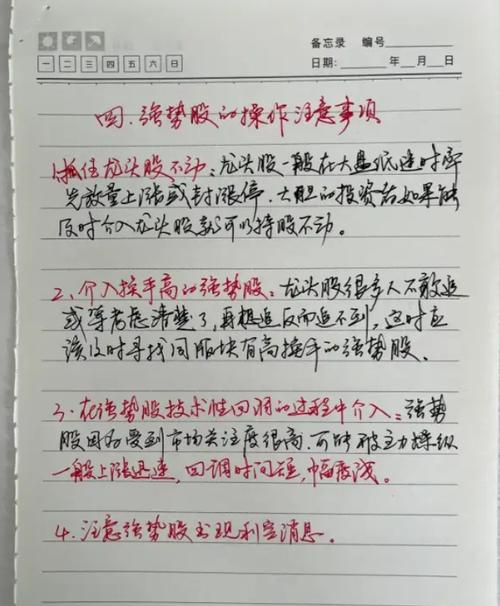 备忘录 编号
一 二 三 四 五 六 日
日期: 年 月 日
四.强势股的操作注意事项
1.抓住龙头股不动:龙头股一般在大盘低迷时率
先放量上涨或封涨停.大胆的投资者如果能
及时介入龙头股就可以持股不动。
2、介入换手高的强势股:龙头股很多人不敢追
或等考虑清楚了,再想追反而追不到,这时应
该及时寻找同版块有高换手的强势股。
3、在强势股技术性回弱的过程中介入:强势
股因为受到市场关注度很高.可能被主力操纵
一般上涨迅速,回调时间短,幅度浅。
4.注意强势股出现利空消息。